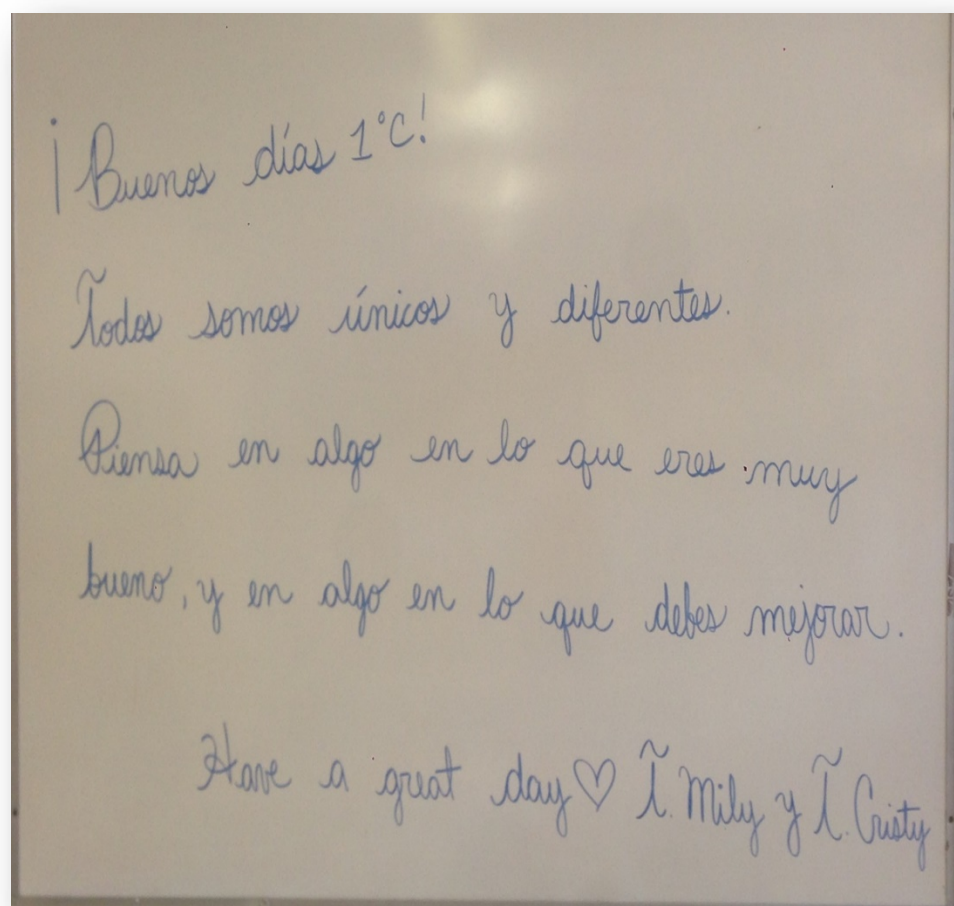 ¡Buenos días 1°C!
Todos somos únicos y diferentes.
Piensa en algo en lo que eres muy
bueno, y en algo en lo que debes mejorar.
Have a great day ♡ T. Mily y T. Cristy